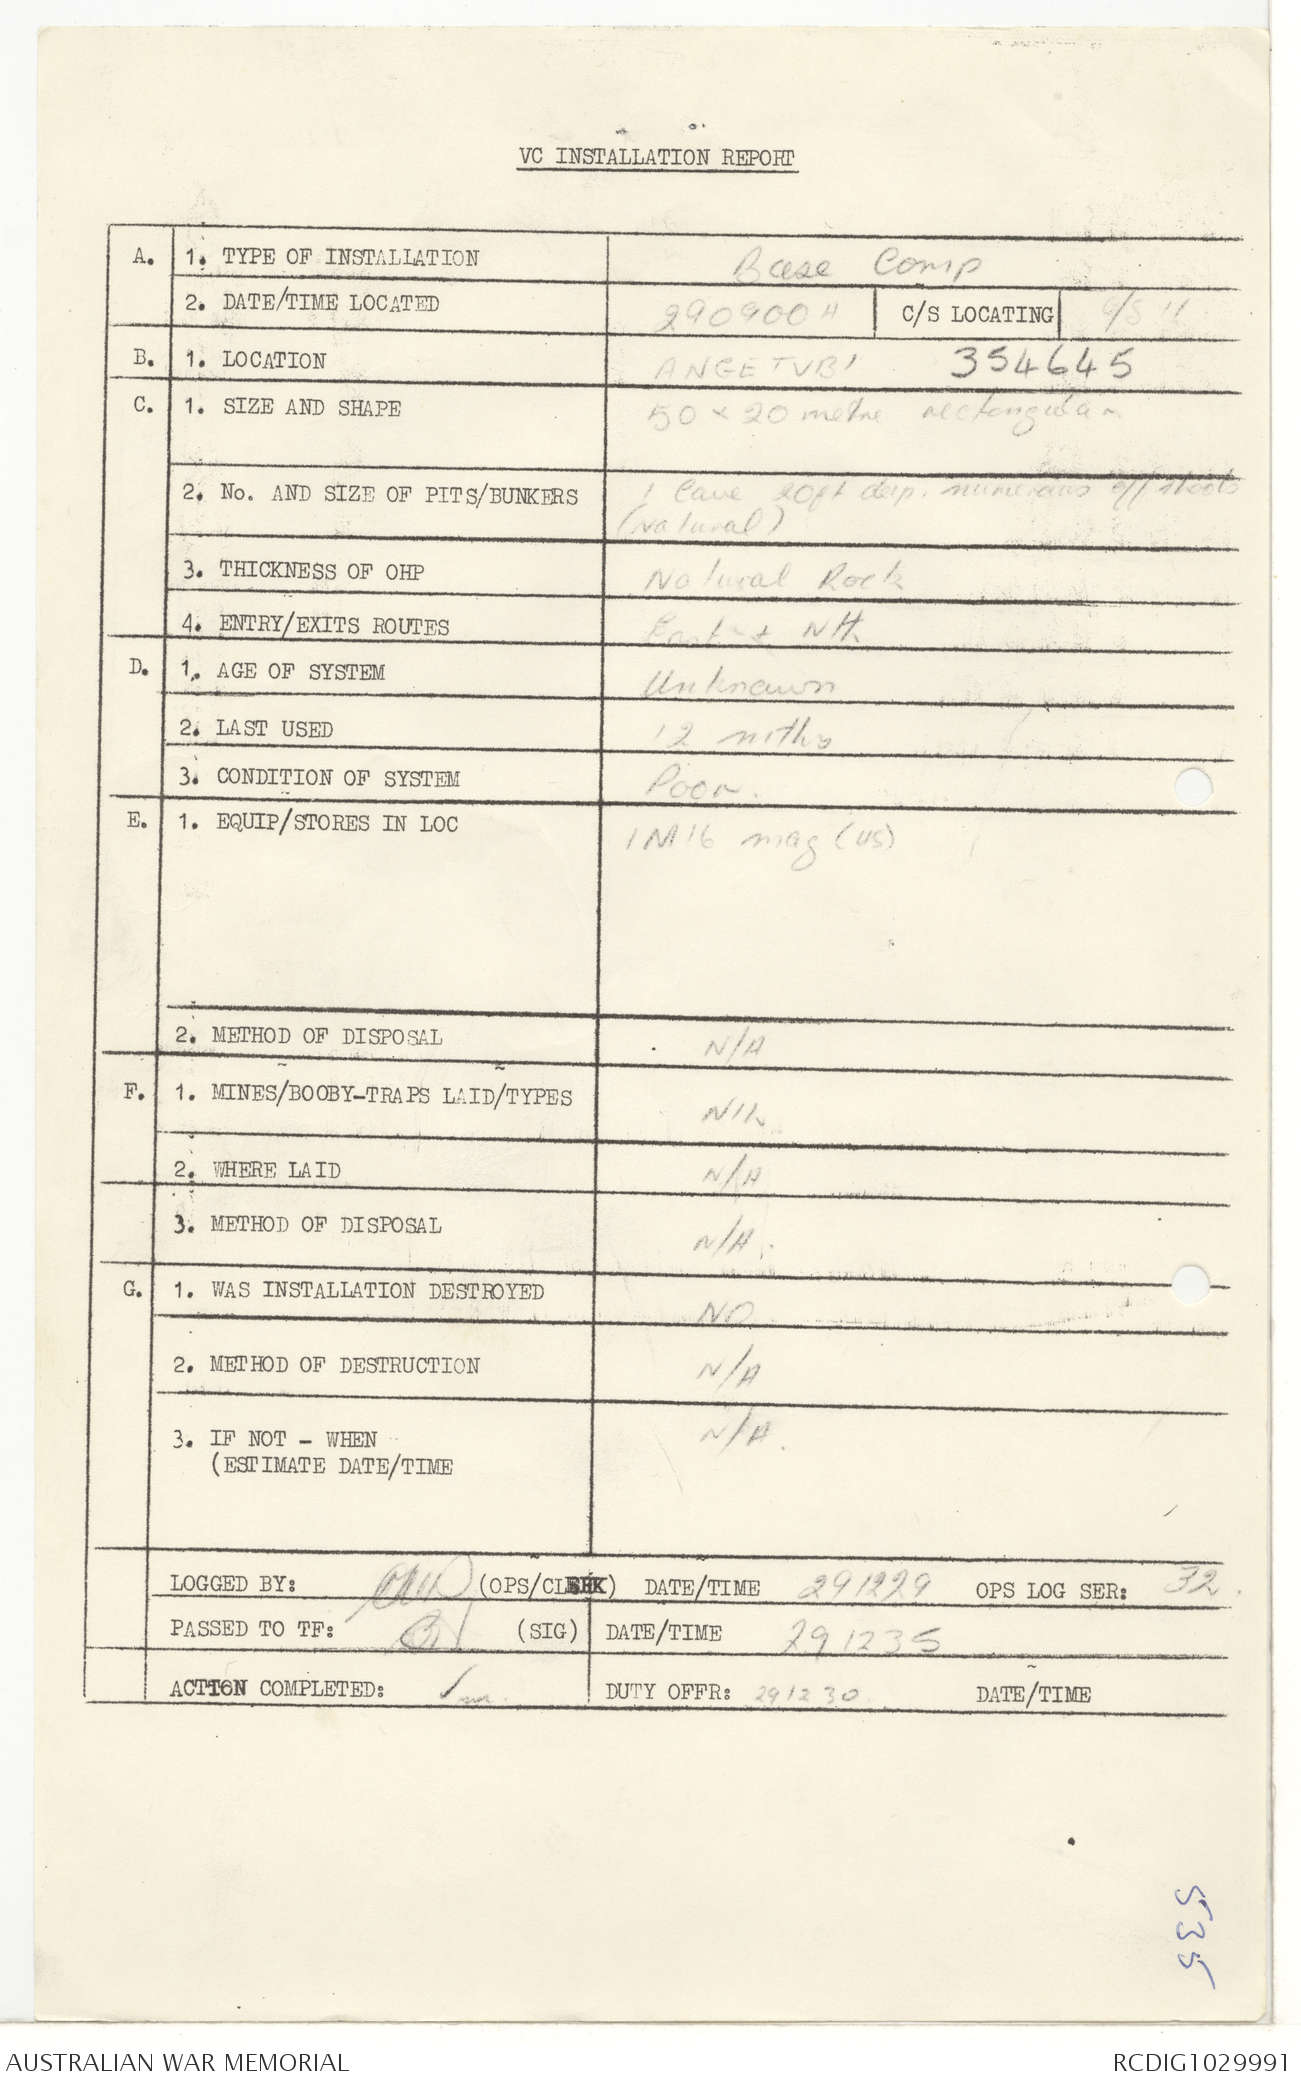 VC INSTALLATION REPORT
A. 1. TYPE OF INSTALLATION Base Comp
2. DATE/TIME LOCATED 290900H C/S LOCATING C/S 11
B. 1. LOCATION 354645
C. 1. SIZE AND SHAPE 50 x 20 metre rectangular
2. No. AND SIZE OF PITS/BUNKERS 1 Cave 20ft deep. numerous off shoots
(Natural)
3. THICKNESS OF OHP Natural Rock
4. ENTRY/EXITS ROUTES East + Nth
D. 1. AGE OF SYSTEM Unknown
2. LAST USED 12 mths
3. CONDITION OF SYSTEM Poor.
E. 1. EQUIP/STORES IN LOC 1 M16 mag (US)
2. METHOD OF DISPOSAL N/A
F. 1. MINES/BOOBY-TRAPS LAID/TYPES NIL
2. WHERE LAID N/A
3. METHOD OF DISPOSAL N/A.
G. 1. WAS INSTALLATION DESTROYED NO
2. METHOD OF DESTRUCTION N/A
3. IF NOT - WHEN N/A.
(ESTIMATE DATE/TIME
LOGGED BY: (OPS/CLERK) DATE/TIME 291229 OPS LOG SER: 32.
PASSED TO TF: (SIG) DATE/TIME 291235
ACTION COMPLETED: DUTY OFFR: 291230. DATE/TIME
535
AUSTRALIAN WAR MEMORIAL RCDIG1029991